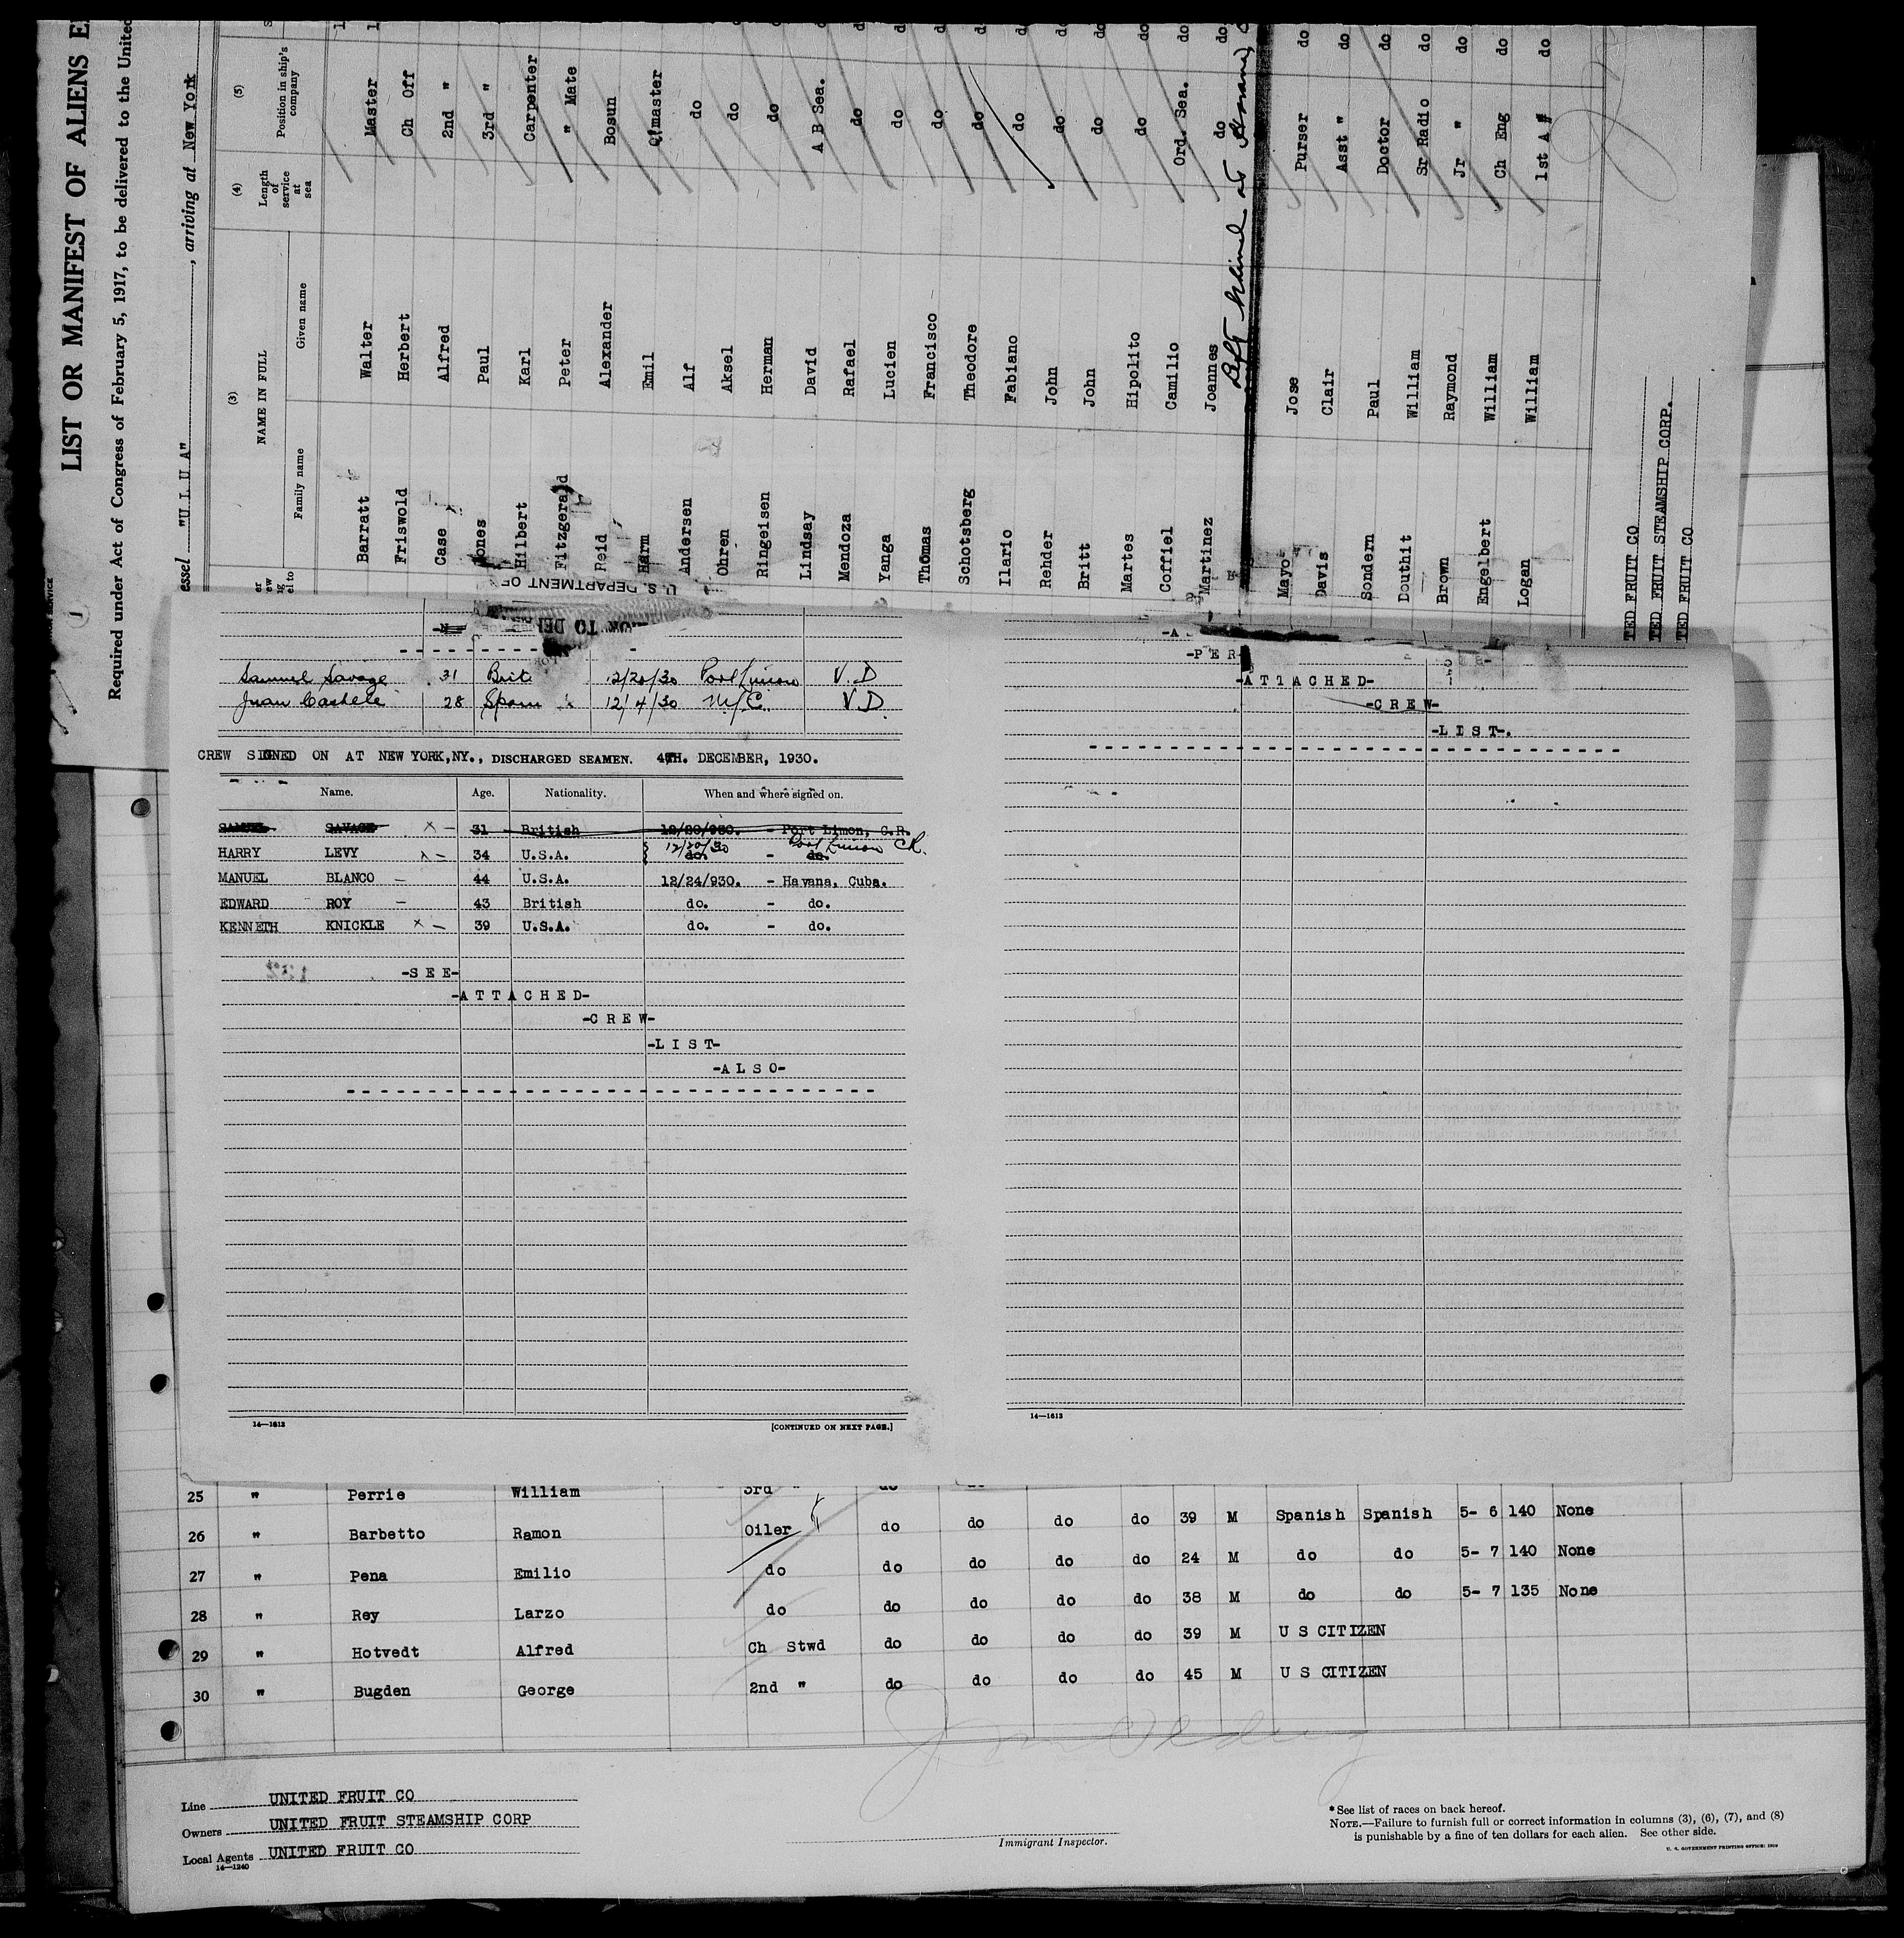 LIST OR MANIFEST OF ALIENS
Required under Act of Congress of February 5, 1917, to be delivered to the United
essel "U L U A", arriving at New York
(3) (4) (5)
NAME IN FULL
Family name Given name
Length of service at sea
Position in ship's company
Barratt Walter Master
Friswold Herbert Ch Off do
Case Alfred 2nd " do
Jones Paul 3rd " do
Hilbert Karl Carpenter do
Fitzgerald Peter " Mate do
Reid Alexander Bosun do
Harm Emil Q'master do
Andersen Alf do do
Ohren Aksel do do
Ringeisen Herman do do
Lindsay David A B Sea. do
Mendoza Rafael do do
Yanga Lucien do do
Thomas Francisco do do
Schotsberg Theodore do do
Ilario Fabiano do do
Rehder John do do
Britt John do do
Martes Hipolito do do
Coffiel Camilio Ord. Sea. do
Martinez Joannes do do
Left behind at
Mayo Jose Purser do
Davis Clair Asst " do
Sondern Paul Doctor do
Douthit William Sr Radio do
Brown Raymond Jr " do
Engelbert William Ch Eng do
Logan William 1st A # do
TED FRUIT CO
TED FRUIT STEAMSHIP CORP.
TED FRUIT CO
U. S. DEPARTMENT OF
Samuel Savage 31 Brit 12/20/30 Port Limon V. D
Juan Castele 28 Spain 12/4/30 N/C. V D
CREW SIGNED ON AT NEW YORK,NY., DISCHARGED SEAMEN. 4TH. DECEMBER, 1930.
Name. Age. Nationality. When and where signed on.
SAMUEL SAVAGE X - 31 British 12/20/930. - Port Limon, C.R.
12/20/30 Port Limon CR.
HARRY LEVY X - 34 U.S.A. do. - do.
MANUEL BLANCO - 44 U.S.A. 12/24/930. - Havana, Cuba.
EDWARD ROY - 43 British do. - do.
KENNETH KNICKLE X - 39 U.S.A. do. - do.
-S E E-
-A T T A C H E D-
-C R E W-
-L I S T-
-A L S O-
14—1613 [CONTINUED ON NEXT PAGE.]
-P E R-
-A T T A C H E D-
-C R E W-
-L I S T-.
14—1613
25 " Perrie William 3rd "
26 " Barbetto Ramon Oiler do do do do 39 M Spanish Spanish 5- 6 140 None
27 " Pena Emilio do do do do do 24 M do do 5- 7 140 None
28 " Rey Larzo do do do do do 38 M do do 5- 7 135 None
29 " Hotvedt Alfred Ch Stwd do do do do 39 M U S CITIZEN
30 " Bugden George 2nd " do do do do 45 M U S CITIZEN
Line UNITED FRUIT CO
Owners UNITED FRUIT STEAMSHIP CORP
Local Agents UNITED FRUIT CO
14—1240
Immigrant Inspector.
* See list of races on back hereof.
NOTE.—Failure to furnish full or correct information in columns (3), (6), (7), and (8)
is punishable by a fine of ten dollars for each alien. See other side.
U. S. GOVERNMENT PRINTING OFFICE: 1929